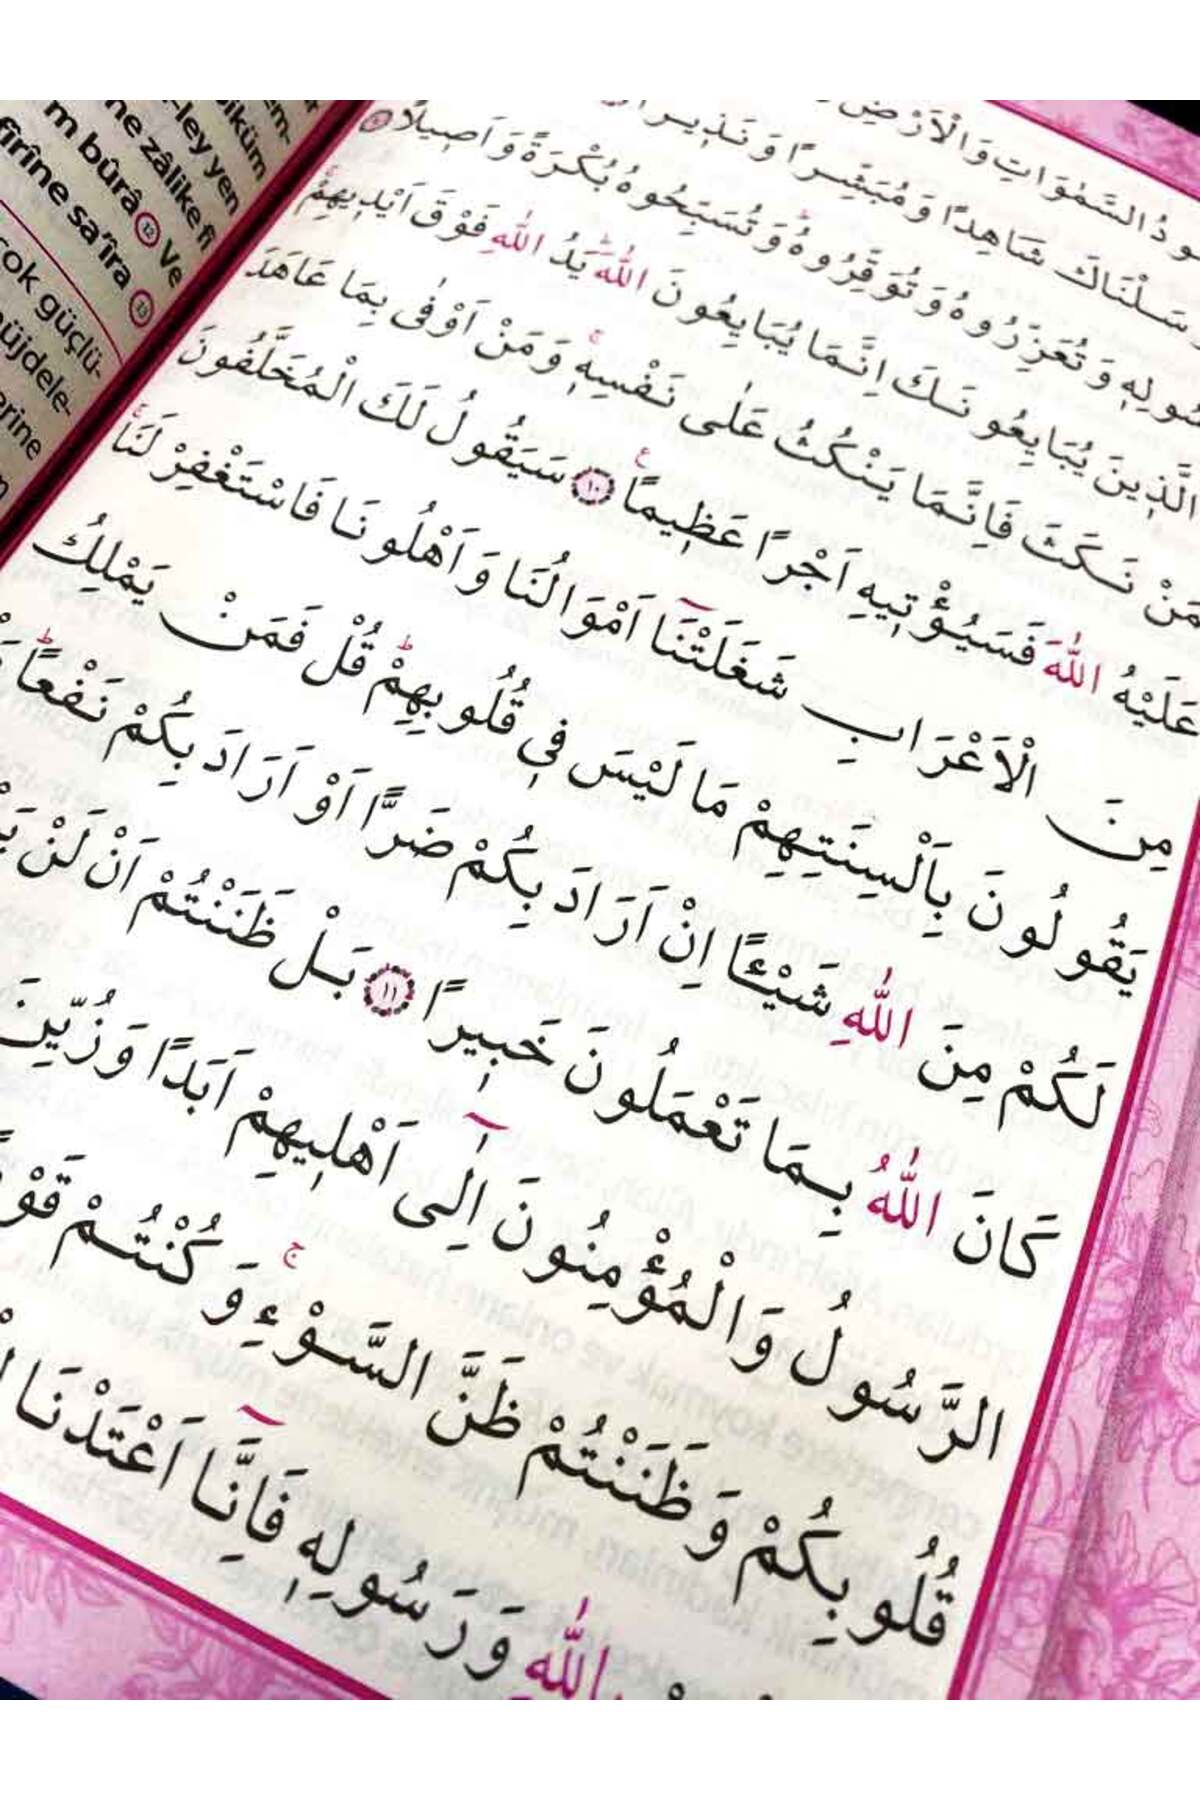 السَّمٰوَاتِ وَالْاَرْضِ
سَلْنَاكَ شَاهِدًا وَمُبَشِّرًا وَنَذِيرًا
سُولِهِ وَتُعَزِّرُوهُ وَتُوَقِّرُوهُ وَتُسَبِّحُوهُ بُكْرَةً وَاَصِيلًا ٩
الَّذِينَ يُبَايِعُونَكَ اِنَّمَا يُبَايِعُونَ اللّٰهَ يَدُ اللّٰهِ فَوْقَ اَيْدِيهِمْ
مَنْ نَكَثَ فَاِنَّمَا يَنْكُثُ عَلٰى نَفْسِهِ وَمَنْ اَوْفٰى بِمَا عَاهَدَ
عَلَيْهُ اللّٰهَ فَسَيُؤْتِيهِ اَجْرًا عَظِيمًا ١٠ سَيَقُولُ لَكَ الْمُخَلَّفُونَ
مِنَ الْاَعْرَابِ شَغَلَتْنَٓا اَمْوَالُنَا وَاَهْلُونَا فَاسْتَغْفِرْ لَنَا
يَقُولُونَ بِاَلْسِنَتِهِمْ مَا لَيْسَ فِي قُلُوبِهِمْ قُلْ فَمَنْ يَمْلِكُ
لَكُمْ مِنَ اللّٰهِ شَيْـًٔا اِنْ اَرَادَ بِكُمْ ضَرًّا اَوْ اَرَادَ بِكُمْ نَفْعًا
كَانَ اللّٰهُ بِمَا تَعْمَلُونَ خَبِيرًا ١١ بَلْ ظَنَنْتُمْ اَنْ لَنْ
الرَّسُولُ وَالْمُؤْمِنُونَ اِلٰٓى اَهْلِيهِمْ اَبَدًا وَزُيِّنَ
قُلُوبِكُمْ وَظَنَنْتُمْ ظَنَّ السَّوْءِ وَكُنْتُمْ
بِاللّٰهِ وَرَسُولِهِ فَاِنَّٓا اَعْتَدْنَا
ley yen
ne zâlike fî
m bûrâ 12 Ve
firîne sa'îra 13
çok güçlü-
müjdele-
erine